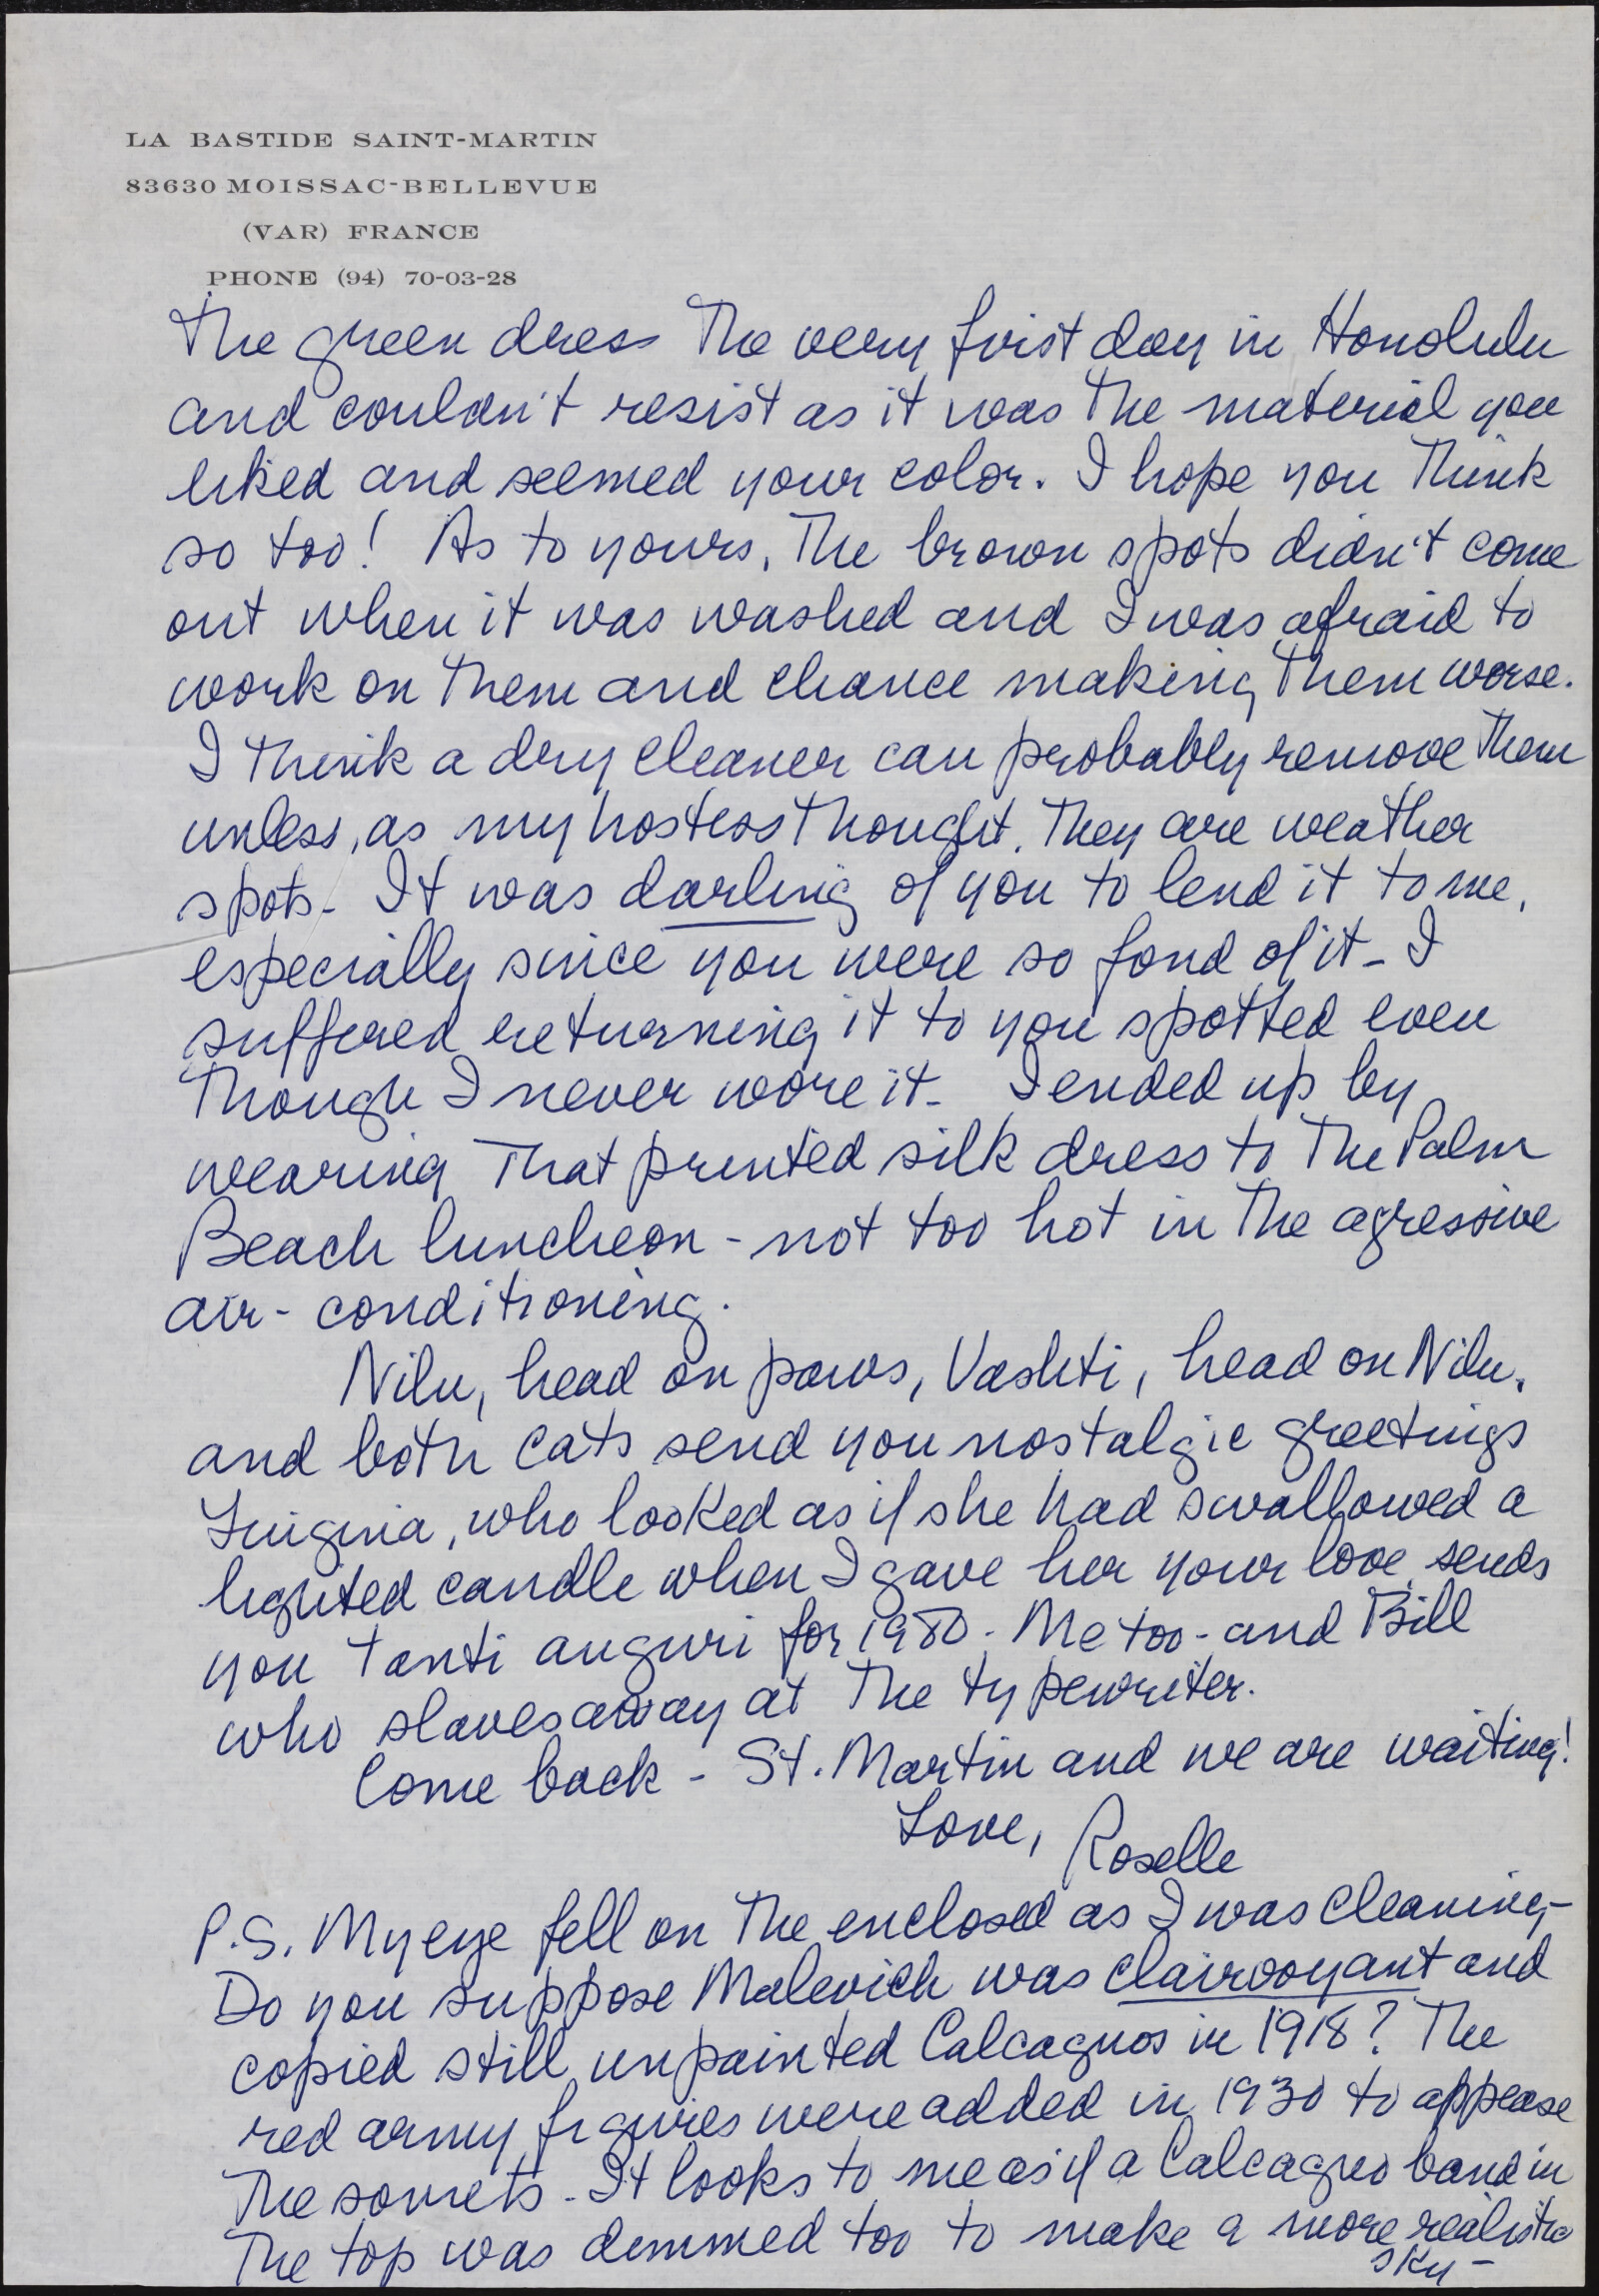 LA BASTIDE SAINT-MARTIN
83630 MOISSAC-BELLEVUE
(VAR) FRANCE
PHONE (94) 70-03-28
The green dress the very first day in Honolulu
and couldn't resist as it was the material you
liked and seemed your color. I hope you think
so too! As to yours, the brown spots didn't come
out when it was washed and I was afraid to
work on them and chance making them worse.
I think a dry cleaner can probably remove them
unless, as my hostess thought, they are weather
spots - It was darling of you to lend it to me,
especially since you were so fond of it - I
suffered returning it to you spotted even
though I never wore it - I ended up by
wearing that printed silk dress to the Palm
Beach luncheon - not too hot in the agressive
air-conditioning.
Nilu, head on paws, Vashti, head on Nilu,
and both cats send you nostalgic greetings
Luigina, who looked as if she had swallowed a
lighted candle when I gave her your love, sends
you tanti auguri for 1980 - Me too - and Bill
who slaves away at the typewriter.
Come back - St. Martin and we are waiting!
Love, Roselle
P.S. My eye fell on the enclosed as I was cleaning -
Do you suppose Malevich was clairvoyant and
copied still unpainted Calcagnos in 1918? The
red army figures were added in 1930 to appease
the soviets - It looks to me as if a Calcagno band in
the top was dimmed too to make a more realistic
sky -